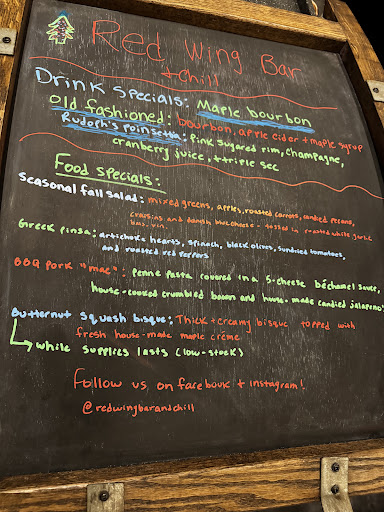 Red Wing Bar
+ Chill
Drink specials: Maple bourbon
Old fashioned: bourbon, apple cider + maple syrup
Rudolph's poinsettia: pink sugared rim, champagne,
cranberry juice, + triple sec
Food specials:
Seasonal fall salad: mixed greens, apples, roasted carrots, candied pecans,
craisins and danish blue cheese - tossed in
Greek pinsa: artichoke hearts, spinach, black olives, sundried tomatoes,
and roasted red peppers
BBQ pork "mac": penne pasta covered in a 5-cheese béchamel sauce,
house-cooked crumbled bacon and house-made candied jalapeños
Butternut squash bisque: Thick + creamy bisque topped with
fresh house-made maple crème
while supplies lasts (low-stock)
Follow us on facebook + instagram!
@redwingbarandchill